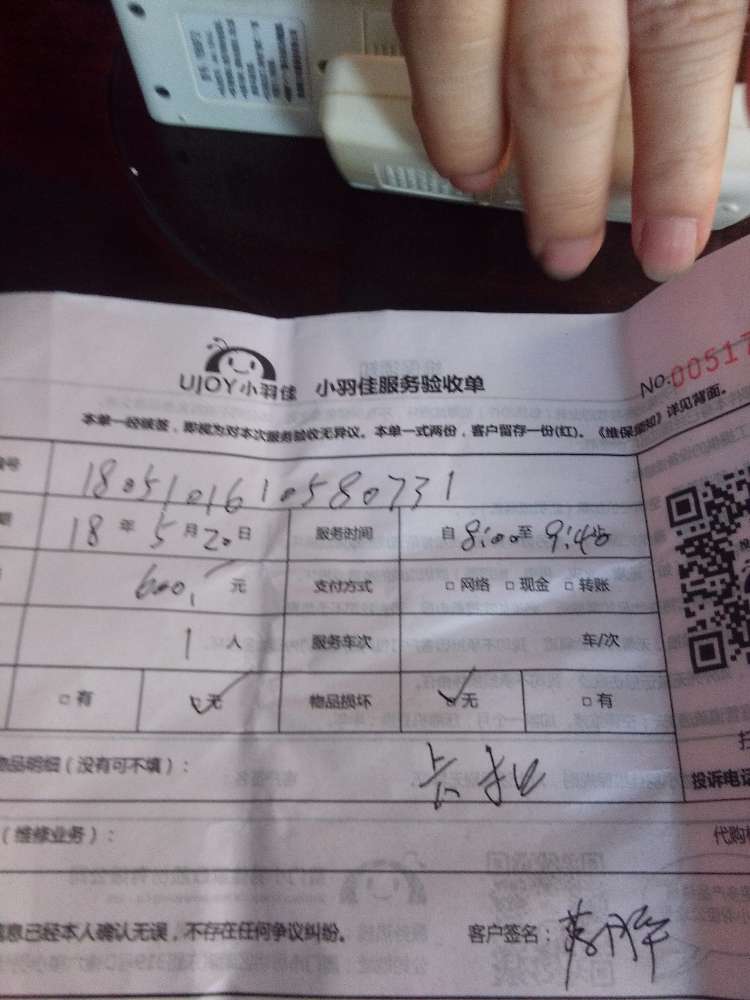 UJOY小羽佳 小羽佳服务验收单
No.00517
本单一经被签，即视为对本次服务验收无异议。本单一式两份，客户留存一份(红)。《维保须知》详见背面。
号 180510161058073​1
期 18 年 5 月 20 日 服务时间 自 8:00 至 9:45
600,- 元 支付方式 □ 网络 □ 现金 □ 转账
1 人 服务车次 车/次
□ 有 □ 无 物品损坏 □ 无 □ 有
物品明细（没有可不填）：
投诉电话
（维修业务）： 代购
信息已经本人确认无误，不存在任何争议纠纷。 客户签名：